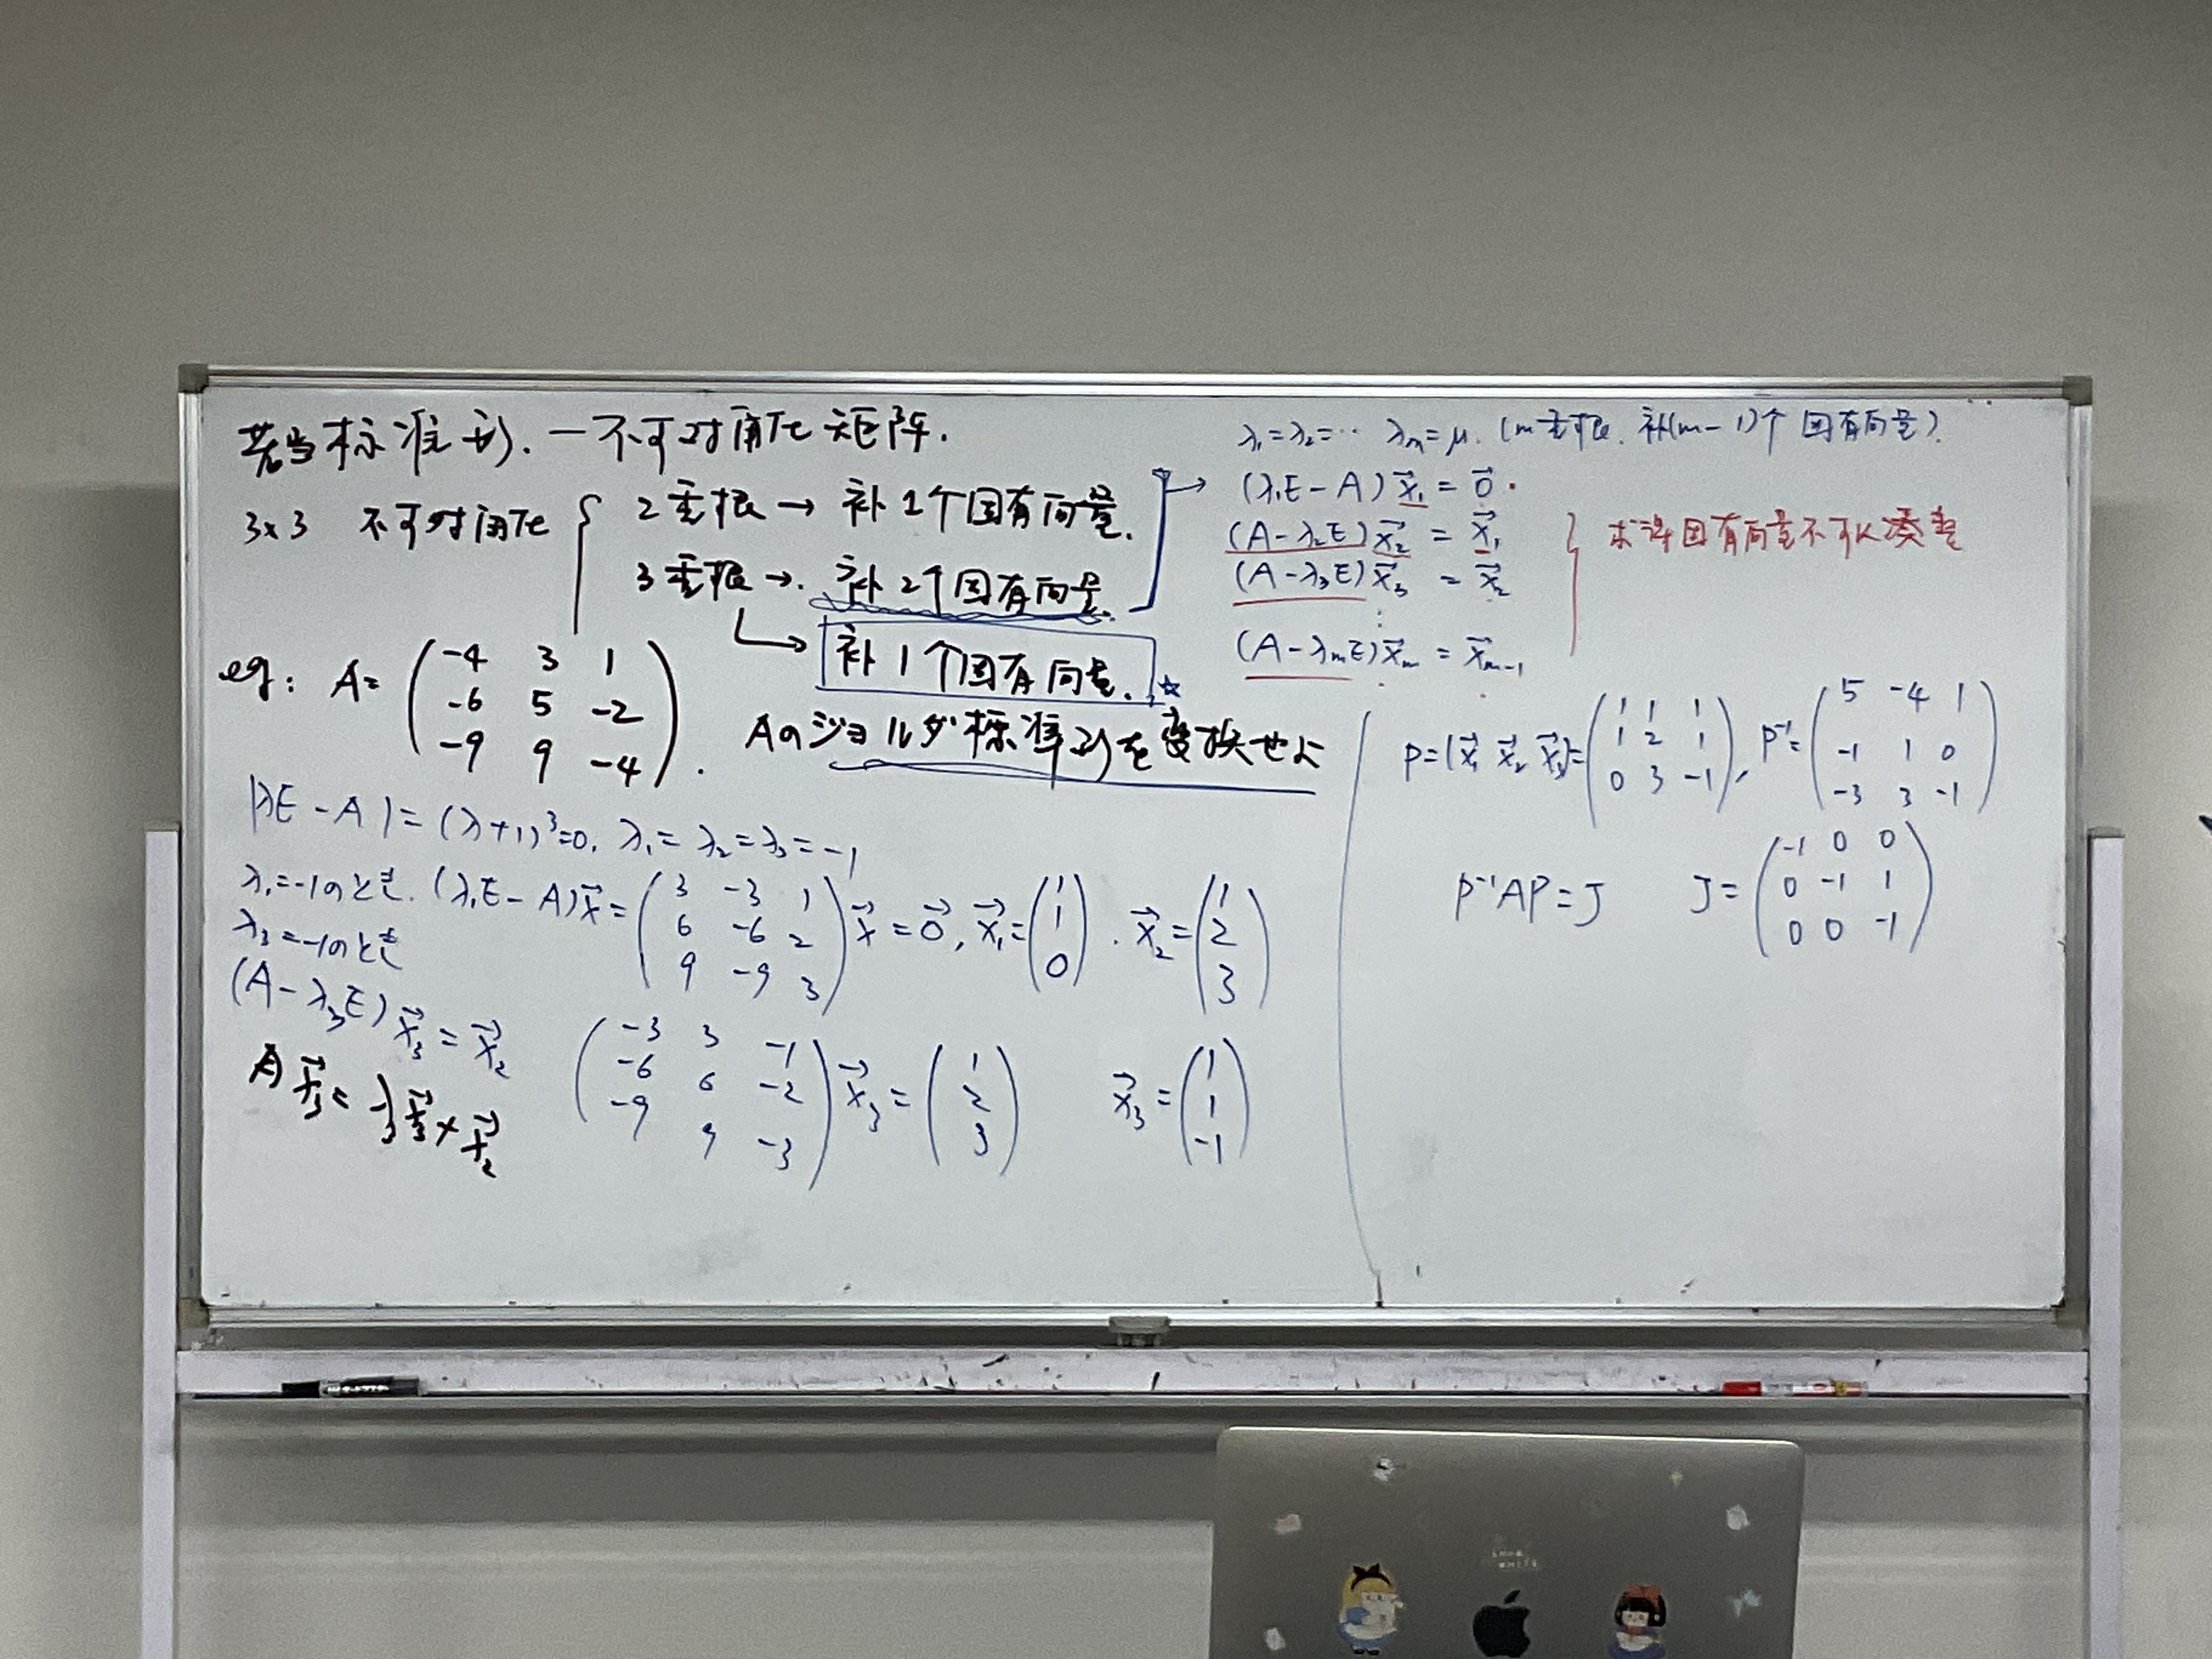 若当标准形. — 不可对角化矩阵.
3×3 不可对角化 { 2重根 → 补1个固有向量.
3重根 →. 补2个固有向量.
补1个固有向量. ☆
eg: A= (-4 3 1
-6 5 -2
-9 9 -4).
Aのジョルダ标準形を变换せよ
|λE - A| = (λ+1)³=0. λ₁= λ₂= λ₃= -1
λ₁=-1のとき. (λ₁E - A)x⃗ = (3 -3 1
6 -6 2
9 -9 3) x⃗ = 0⃗, x⃗₁= (1
1
0) . x⃗₂= (1
2
3)
λ₃=-1のとき
(A - λ₃E) x⃗₃ = x⃗₂
(-3 3 -1
-6 6 -2
-9 9 -3) x⃗₃ = (1
2
3) x⃗₃= (1
1
-1)
λ₁=λ₂=… λₘ=μ. (m重根. 补(m-1)个固有向量).
(λ₁E - A) x⃗₁ = 0⃗
(A - λ₂E) x⃗₂ = x⃗₁
(A - λ₃E) x⃗₃ = x⃗₂
⋮
(A - λₘE) x⃗ₘ = x⃗ₘ₋₁
求详固有向量不可以凑整
P=(x⃗₁ x⃗₂ x⃗₃)= (1 1 1
1 2 1
0 3 -1), P⁻¹= (5 -4 1
-1 1 0
-3 3 -1)
P⁻¹AP = J J= (-1 0 0
0 -1 1
0 0 -1)